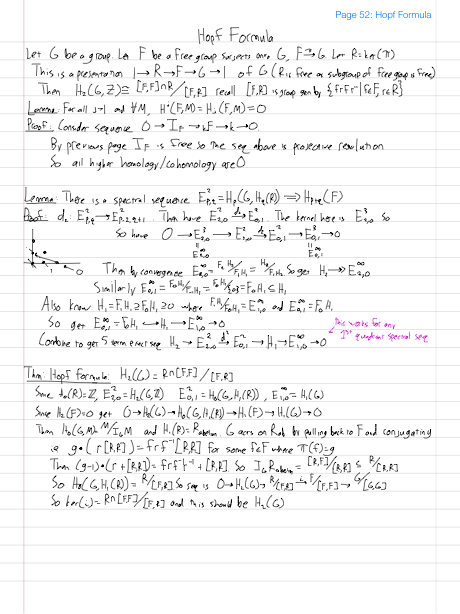 Page 52: Hopf Formula
Hopf Formula
Let G be a group. Let F be a free group surjects onto G, F ↠ G Let R = ker(π)
This is a presentation 1→R→F→G→1 of G (R is free as subgroup of free group is free)
Then H₂(G,Z) ≅ [F,F]∩R/[F,R] recall [F,R] is group gen by {frf⁻¹r⁻¹|f∈F, r∈R}
Lemma: For all i>1 and ∀M, Hⁱ(F,M)=Hᵢ(F,M)=0
Proof: Consider sequence 0→I_F→kF→k→0
By previous page I_F is free so the seq above is projective resolution
So all higher homology/cohomology are 0
Lemma: There is a spectral sequence E²_{p,q}=H_p(G,H_q(R)) ⟹ H_{p+q}(F)
Proof: d₂: E²_{p,q}→E²_{p-2,q+1}. Then have E²_{2,0} →^{d₂} E²_{0,1}. The kernel here is E³_{2,0} so
So have 0→E³_{2,0}→E²_{2,0} →^{d₂} E²_{0,1}→E³_{0,1}→0
E^∞_{2,0} E^∞_{0,1}
Then by convergence E^∞_{2,0} = F₂H₂/F₁H₂ = H₂/F₁H₂. So get H₂ ↠ E^∞_{2,0}
Similarly E^∞_{0,1} = F₀H₁/F₋₁H₁ = F₀H₁/{0} = F₀H₁ ⊆ H₁
Also know H₁=F₁H₁ ⊇ F₀H₁ ⊇ 0 where F₁H₁/F₀H₁ = E^∞_{1,0} and E^∞_{0,1} = F₀H₁
So get E^∞_{0,1} = F₀H₁ ↪ H₁ → E^∞_{1,0} → 0
this works for any
1st quadrant spectral seq
Combine to get 5 term exact seq H₂→E²_{2,0} →^{d²} E²_{0,1}→H₁→E^∞_{1,0}→0
Thm: Hopf formula: H₂(G) = R∩[F,F]/[F,R]
Since H₀(R)=Z, E²_{2,0}=H₂(G,Z) E²_{0,1}=H₀(G,H₁(R)), E^∞_{1,0}=H₁(G)
Since H₂(F)=0 get 0→H₂(G)→H₀(G,H₁(R))→H₁(F)→H₁(G)→0
Then H₀(G,M)=M/I_G M and H₁(R)=R_abelian. G acts on R_ab by pulling back to F and conjugating
ie g•(r[R,R]) = frf⁻¹[R,R] for some f∈F where π(f)=g
Then (g-1)•(r+[R,R]) = frf⁻¹r⁻¹+[R,R] So I_G R_abelian = [R,F]/[R,R] ⊆ R/[R,R]
So H₀(G,H₁(R)) = R/[F,R] So seq is 0→H₂(G)→R/[F,R] →^{i} F/[F,F]→G/[G,G]
So ker(i) = R∩[F,F]/[F,R] and this should be H₂(G)